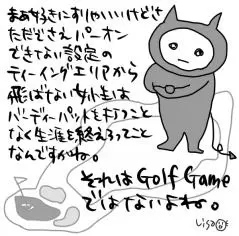 まぁ好きにすりゃいいけどさ
ただどさんパーオン
できない設定の
ティーイングエリアから
飛ばない女性は
バーディーパットを打つこと
なく生涯を終えるってこと
なんですかね。
それはGolf Game
ではないよね。
Lisa